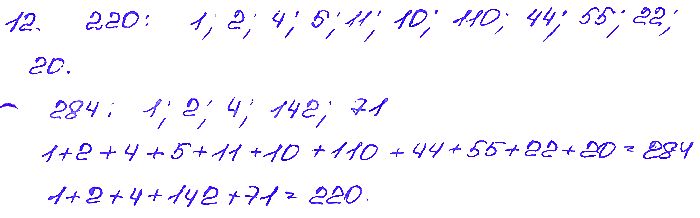 12. 220: 1; 2; 4; 5; 11; 10; 110; 44; 55; 22;
20.
– 284: 1; 2; 4; 142; 71
1+2+4+5+11+10+110+44+55+22+20=284
1+2+4+142+71=220.